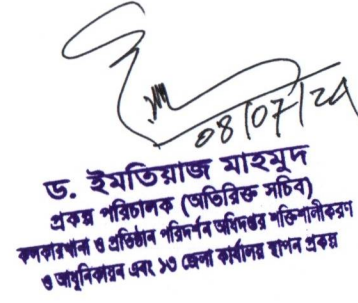 08/07/24
ড. ইমতিয়াজ মাহমুদ
প্রকল্প পরিচালক (অতিরিক্ত সচিব)
কলকারখানা ও প্রতিষ্ঠান পরিদর্শন অধিদপ্তর শক্তিশালীকরণ
ও আধুনিকায়ন এবং ১৩ জেলা কার্যালয় স্থাপন প্রকল্প